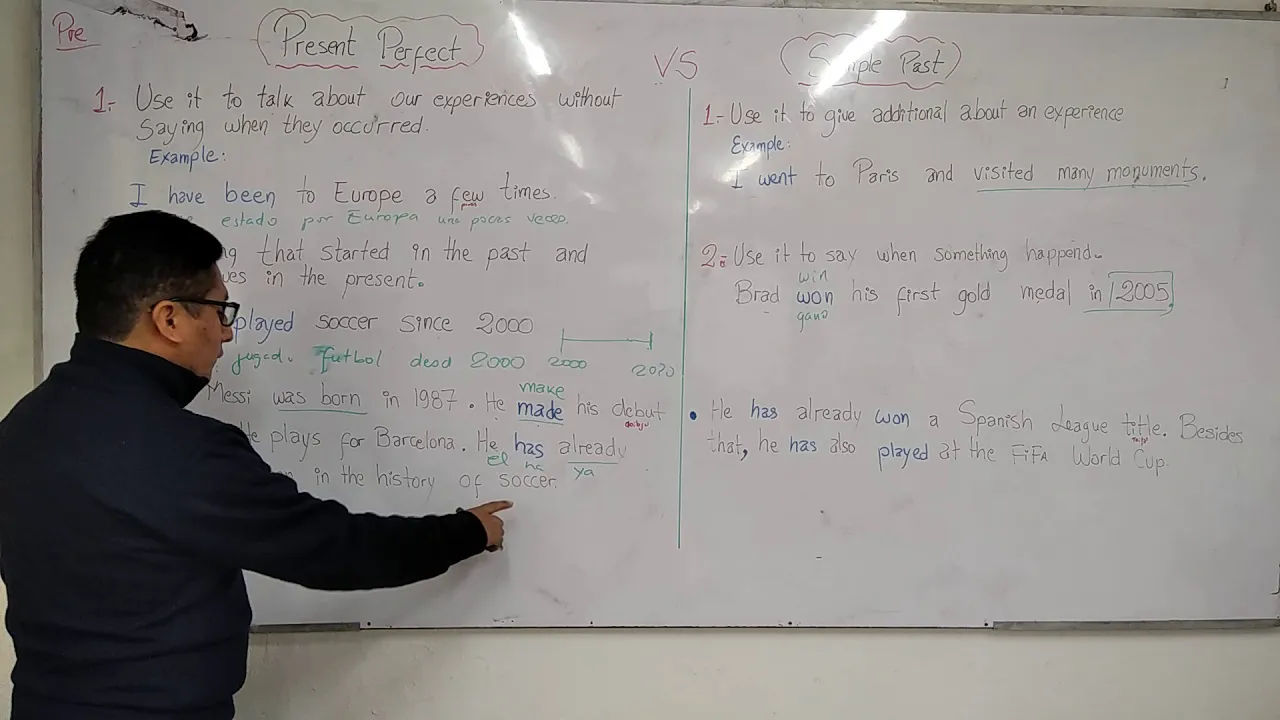 Pre
Present Perfect
VS
Simple Past
1.- Use it to talk about our experiences without
saying when they occurred.
Example:
I have been to Europe a few times.
estado por Europa una pocas veces.
that started in the past and
in the present.
played soccer since 2000
jugad. futbol desd 2000
2000
2020
Messi was born in 1987. He made his debut
make
plays for Barcelona. He has already
el ha ya
in the history of soccer.
1.- Use it to give additional about an experience
Example:
I went to Paris and visited many monuments.
2.- Use it to say when something happend.
win
Brad won his first gold medal in 2005
gano
• He has already won a Spanish League title. Besides
that, he has also played at the FiFA World Cup.